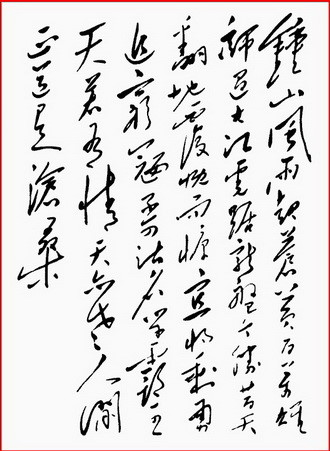 鐘山風雨起蒼黄百萬雄
師過大江虎踞龍盤今勝昔天
翻地覆慨而慷宜將剩勇
追窮寇不可沽名學霸王
天若有情天亦老人間
正道是滄桑